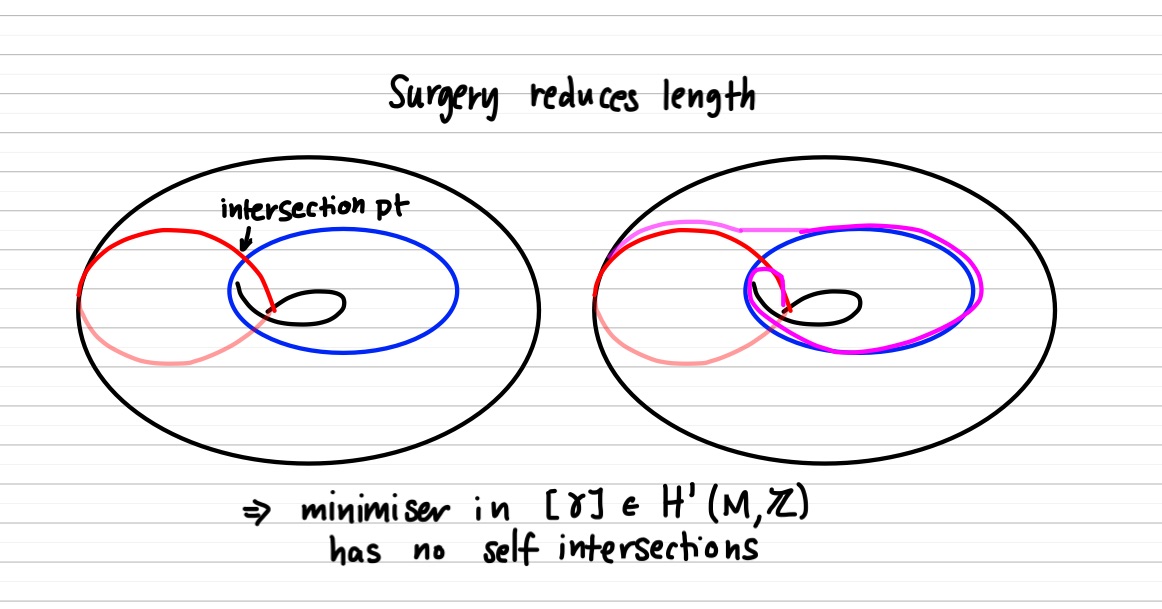 Surgery reduces length
intersection pt
⇒ minimiser in [γ] ∈ H'(M,ℤ)
has no self intersections